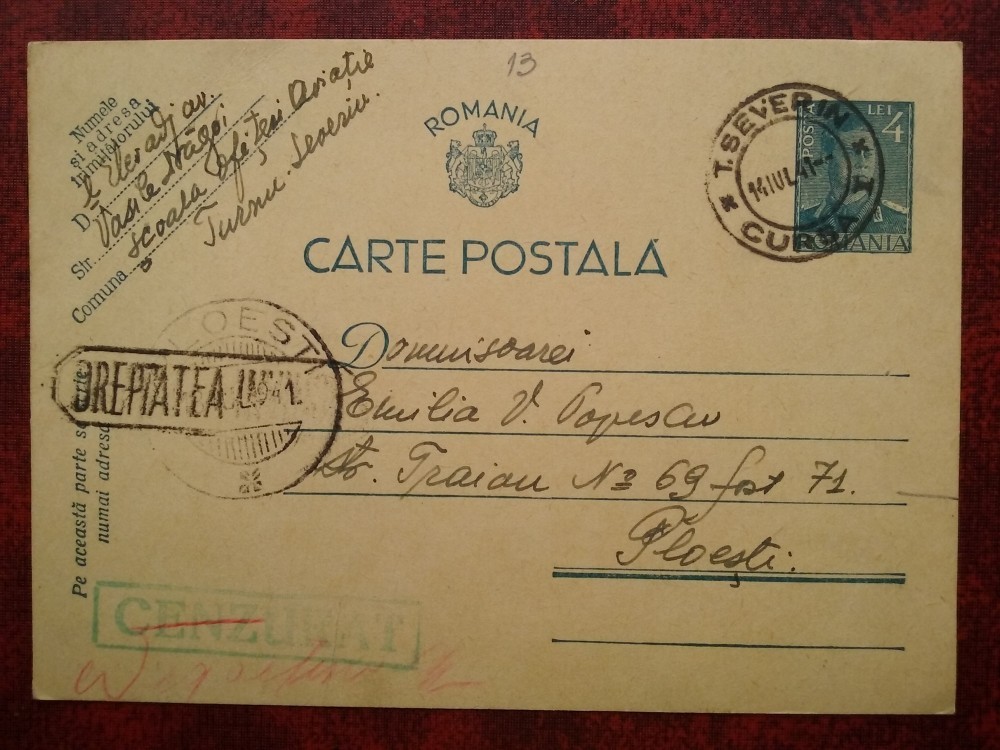 13
Numele
și adresa
trimițătorului
Elev adj av.
D. Vasile Drăgoi
Str. școala Ofițeri Aviație
Comuna Turnu-Severin.
ROMANIA
CARTE POSTALĂ
POSTA
LEI 4
ROMANIA
T. SEVERIN
14 IUL 41
CURSA I
Domnisoarei
Emilia V. Popescu
Str. Traian No 69 fost 71.
Ploești.
PLOESTI
1941
DREPTATEA
Pe această parte se
numai adresa
CENZURAT